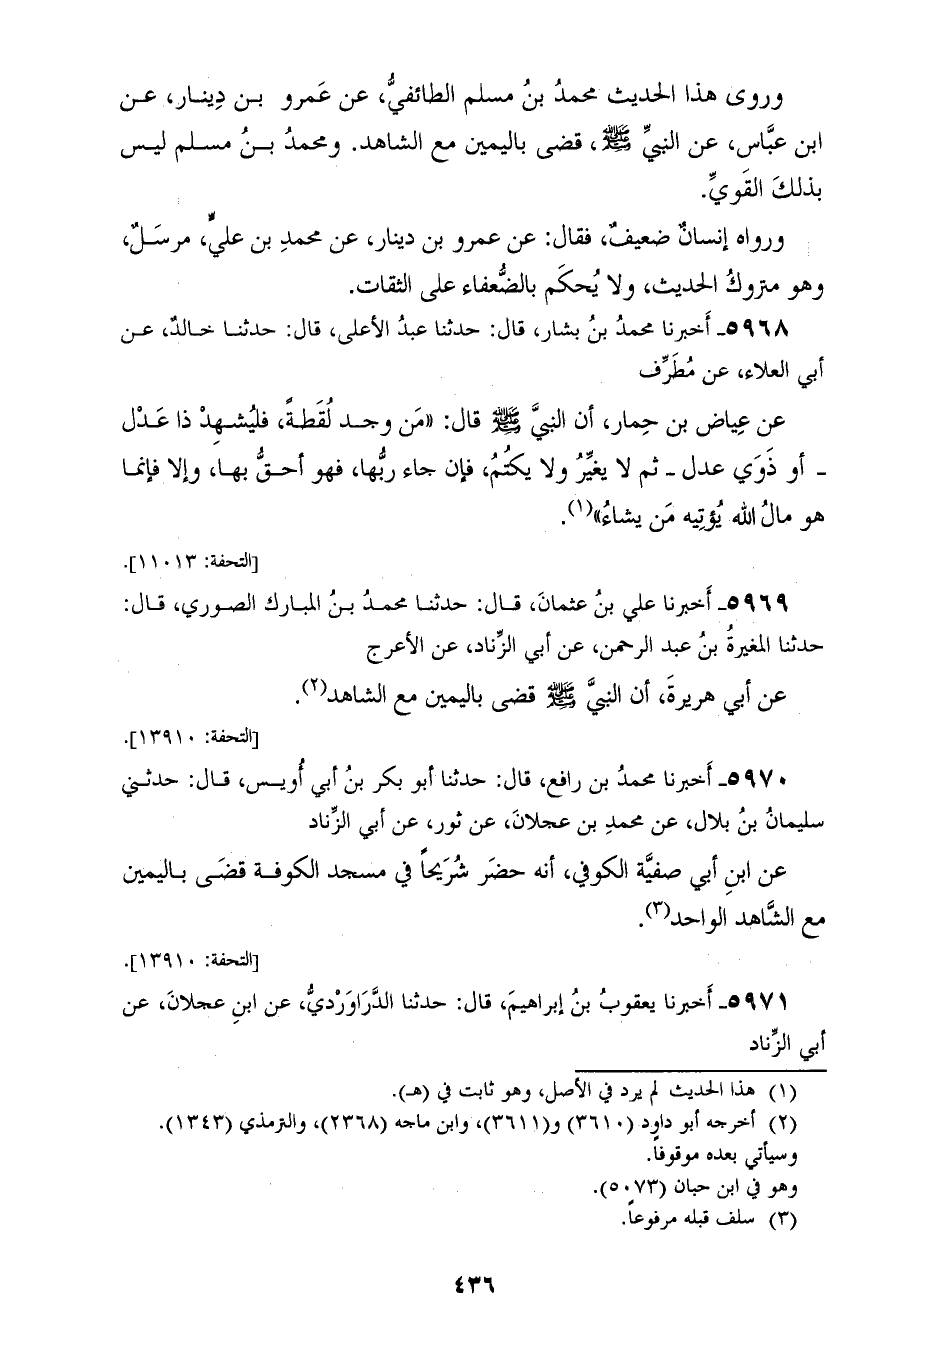 وروى هذا الحديث محمدُ بنُ مسلم الطائفيُّ، عن عَمرو بن دِينار، عن
ابن عبَّاس، عن النبيِّ ﷺ، قضى باليمين مع الشاهد. ومحمدُ بنُ مسلم ليس
بذلكَ القَويِّ.
ورواه إنسانٌ ضعيفٌ، فقال: عن عمرو بن دينار، عن محمدِ بن عليٍّ، مرسَلٌ،
وهو متروكُ الحديث، ولا يُحكَم بالضُّعفاء على الثقات.
٥٩٦٨ـ أَخبرنا محمدُ بنُ بشار، قال: حدثنا عبدُ الأعلى، قال: حدثنا خالدٌ، عن
أبي العلاء، عن مُطَرِّف
عن عِياض بن حِمار، أن النبيَّ ﷺ قال: «مَن وجد لُقَطةً، فليُشهِدْ ذا عَدْل
ـ أو ذَوَي عدل ـ ثم لا يغيِّرُ ولا يكتُمُ، فإن جاء ربُّها، فهو أحقُّ بها، وإلا فإنما
هو مالُ الله يُؤتِيه مَن يشاءُ»(١).
[التحفة: ١١٠١٣].
٥٩٦٩ـ أَخبرنا علي بنُ عثمانَ، قال: حدثنا محمدُ بنُ المبارك الصوري، قال:
حدثنا المغيرةُ بنُ عبد الرحمن، عن أبي الزِّناد، عن الأعرج
عن أبي هريرةَ، أن النبيَّ ﷺ قضى باليمين مع الشاهد(٢).
[التحفة: ١٣٩١٠].
٥٩٧٠ـ أَخبرنا محمدُ بن رافع، قال: حدثنا أبو بكر بنُ أبي أُويس، قال: حدثني
سليمانُ بنُ بلال، عن محمدِ بن عجلانَ، عن ثور، عن أبي الزِّناد
عن ابنِ أبي صفيَّة الكوفي، أنه حضَر شُرَيحاً في مسجد الكوفة قضَى باليمين
مع الشَّاهد الواحد(٣).
[التحفة: ١٣٩١٠].
٥٩٧١ـ أَخبرنا يعقوبُ بنُ إبراهيمَ، قال: حدثنا الدَّرَاوَرْديُّ، عن ابنِ عجلانَ، عن
أبي الزِّناد
(١) هذا الحديث لم يرد في الأصل، وهو ثابت في (هـ).
(٢) أخرجه أبو داود (٣٦١٠) و(٣٦١١)، وابن ماجه (٢٣٦٨)، والترمذي (١٣٤٣).
وسيأتي بعده موقوفاً.
وهو في ابن حبان (٥٠٧٣).
(٣) سلف قبله مرفوعاً.
٤٣٦